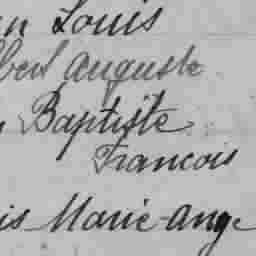 n Louis
bert Auguste
Baptiste
Francois
is Marie-Ange